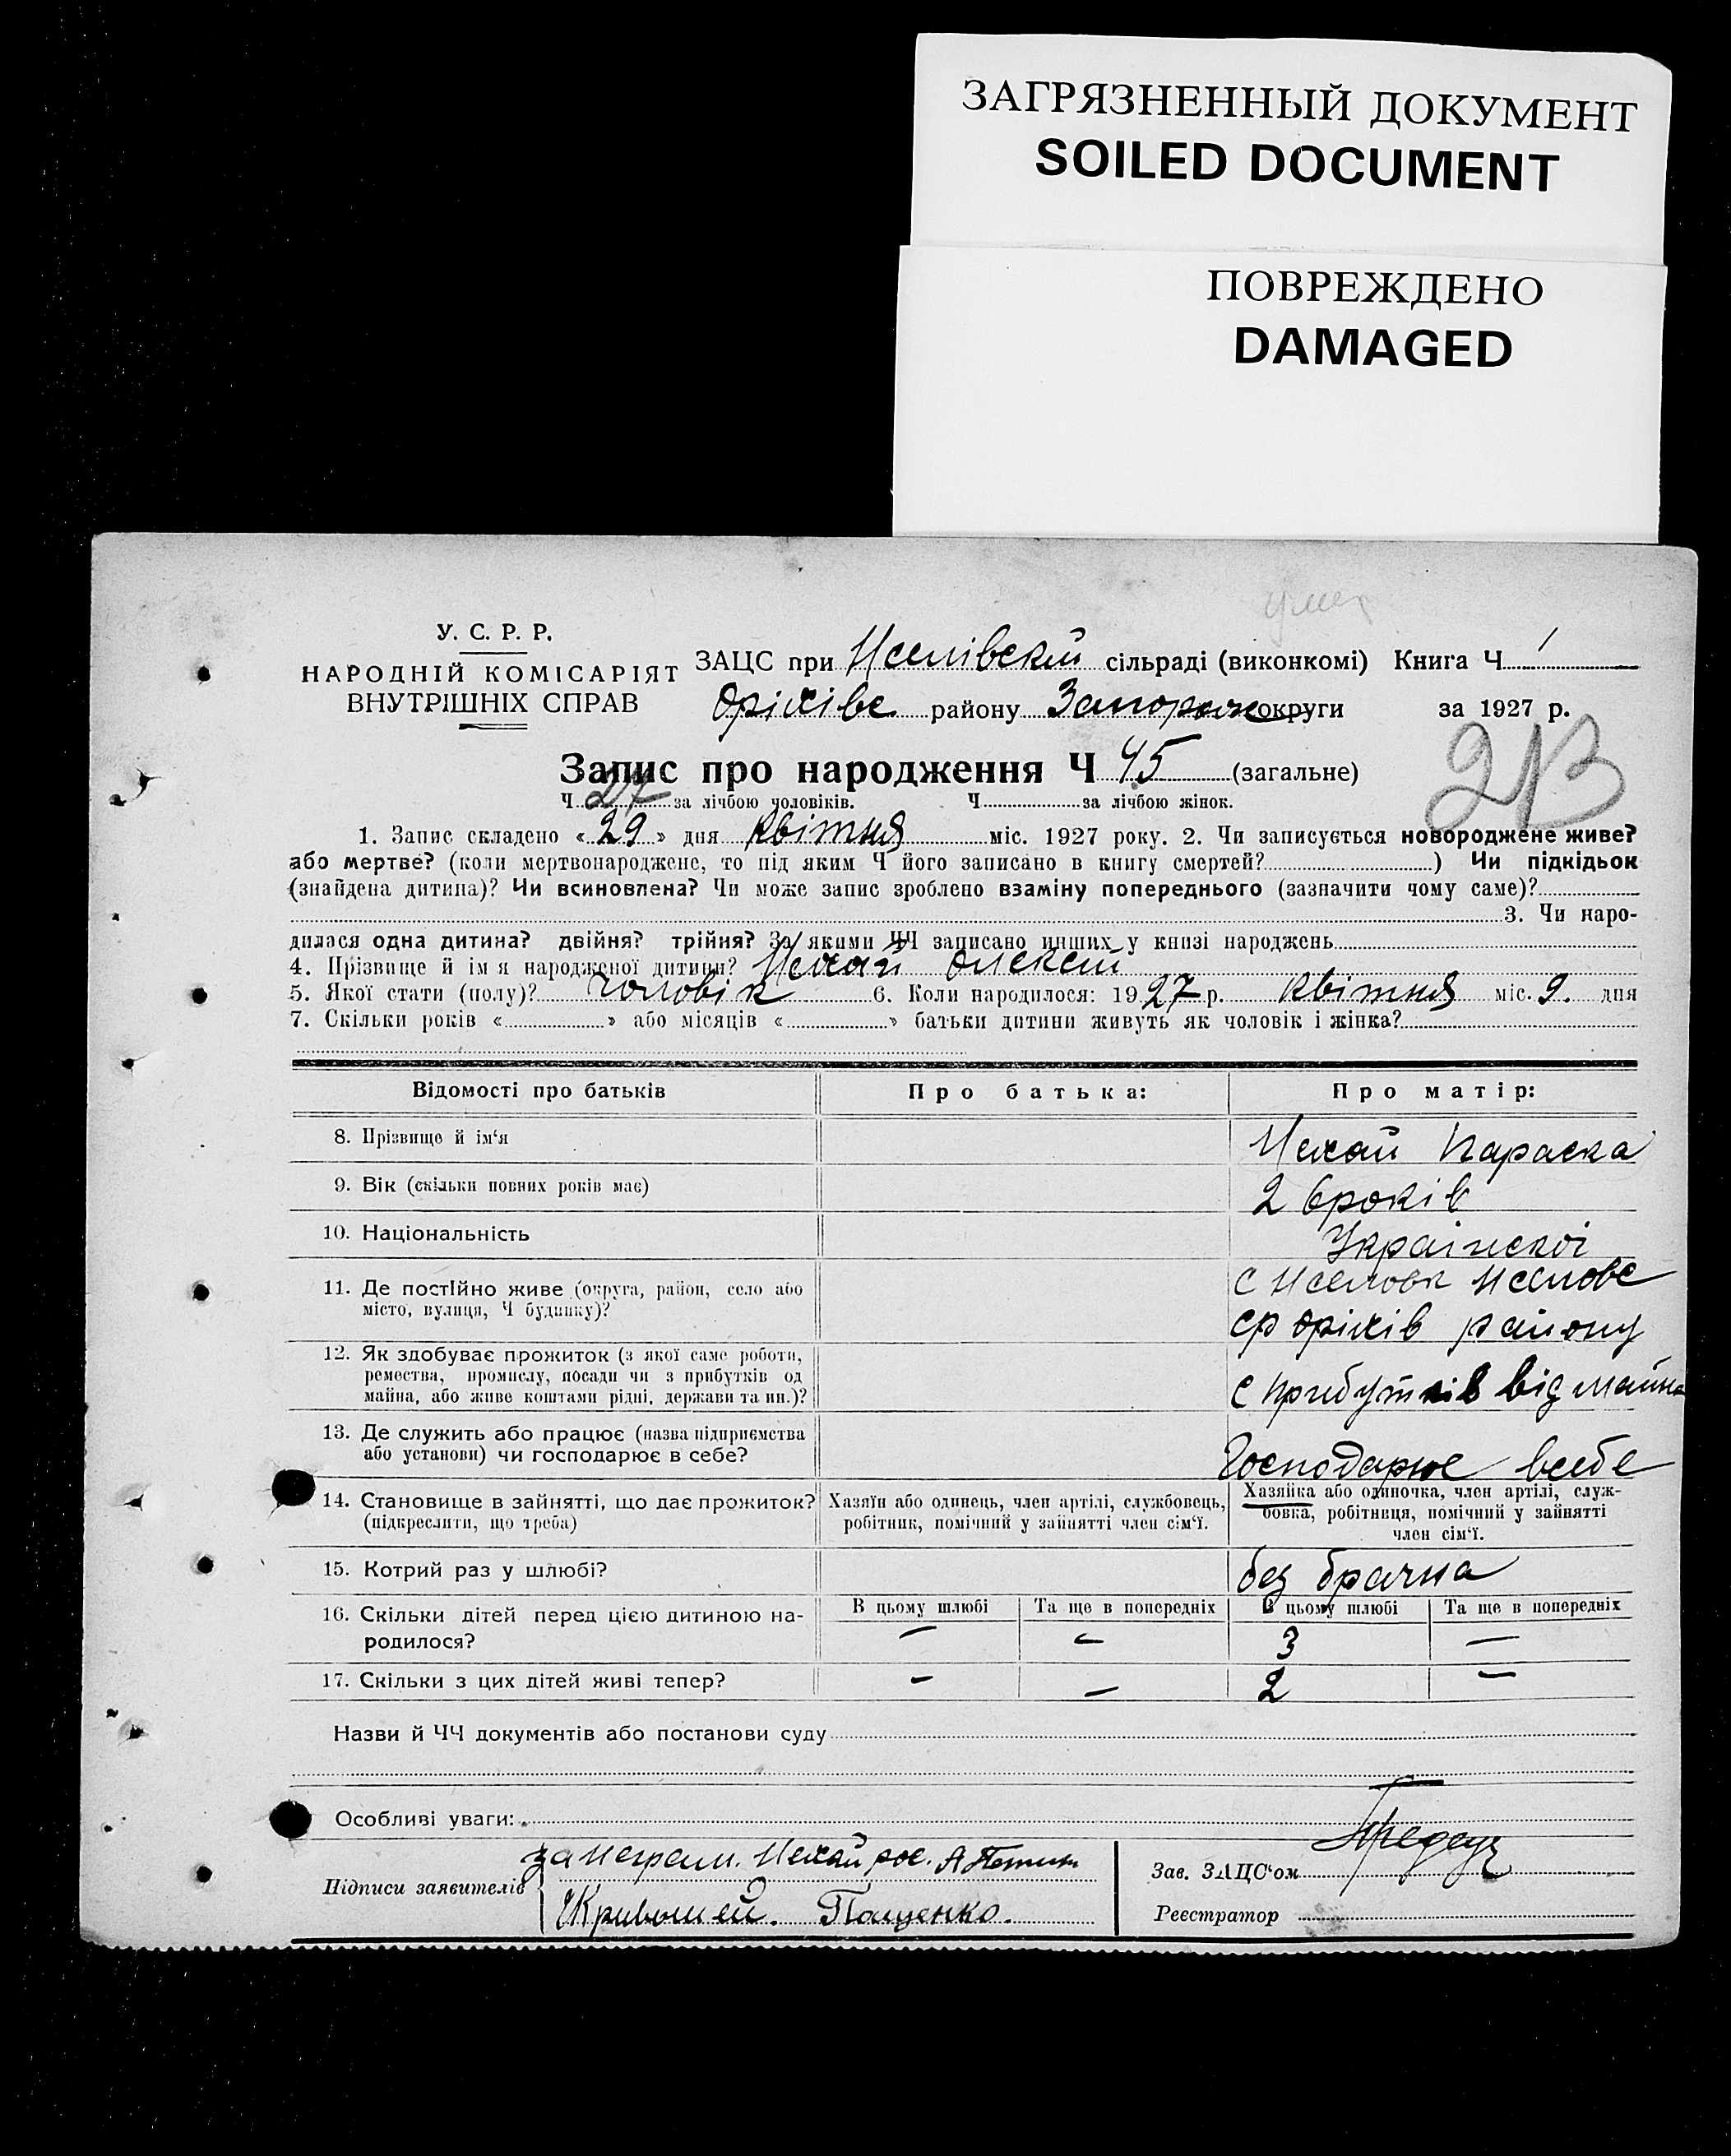 ЗАГРЯЗНЕННЫЙ ДОКУМЕНТ
SOILED DOCUMENT
ПОВРЕЖДЕНО
DAMAGED
У. С. Р. Р.
НАРОДНІЙ КОМІСАРІЯТ
ВНУТРІШНІХ СПРАВ
ЗАЦС при сільраді (виконкомі) Книга Ч 1
Оріхівс району Запорож округи за 1927 р.
213
Запис про народження Ч 45 (загальне)
Ч 27 за лічбою чоловіків. Ч за лічбою жінок.
1. Запис складено « 29 » дня квітня міс. 1927 року. 2. Чи записується новороджене живе?
або мертве? (коли мертвонароджене, то під яким Ч його записано в книгу смертей? ) Чи підкідьок
(знайдена дитина)? Чи всиновлена? Чи може запис зроблено взаміну попереднього (зазначити чому саме)?
3. Чи наро-
дилася одна дитина? двійня? трійня? За якими ЧЧ записано инших у книзі народжень
4. Прізвище й ім я народженої дитини? Нехай Олексій
5. Якої стати (полу)? чоловік 6. Коли народилося: 1927 р. квітня міс. 9. дня
7. Скільки років « » або місяців « » батьки дитини живуть як чоловік і жінка?
Відомості про батьків Про батька: Про матір:
8. Прізвище й ім‘я Нехай Параска
9. Вік (скільки повних років має) 26 років
10. Національність Українскої
11. Де постійно живе (округа, район, село або
місто, вулиця, Ч будинку)?
с/р Оріхів району
12. Як здобуває прожиток (з якої саме роботи,
ремества, промислу, посади чи з прибутків од
майна, або живе коштами рідні, держави та ин.)? с прибутків від майна
13. Де служить або працює (назва підприємства
або установи) чи господарює в себе? Господарює всебе
14. Становище в зайнятті, що дає прожиток?
(підкреслити, що треба)
Хазяїн або одинець, член артілі, службовець,
робітник, помічний у зайнятті член сім‘ї.
Хазяйка або одиночка, член артілі, служ-
бовка, робітниця, помічний у зайнятті
член сім‘ї.
15. Котрий раз у шлюбі? без брачна
16. Скільки дітей перед цією дитиною на-
родилося?
В цьому шлюбі Та ще в попередніх В цьому шлюбі Та ще в попередніх
— — 3 —
17. Скільки з цих дітей живі тепер? — — 2 —
Назви й ЧЧ документів або постанови суду
Особливі уваги:
Підписи заявителів
за неграм. Нехай рос.
Кривошей. Пащенко.
Зав. ЗАЦС‘ом
Реєстратор